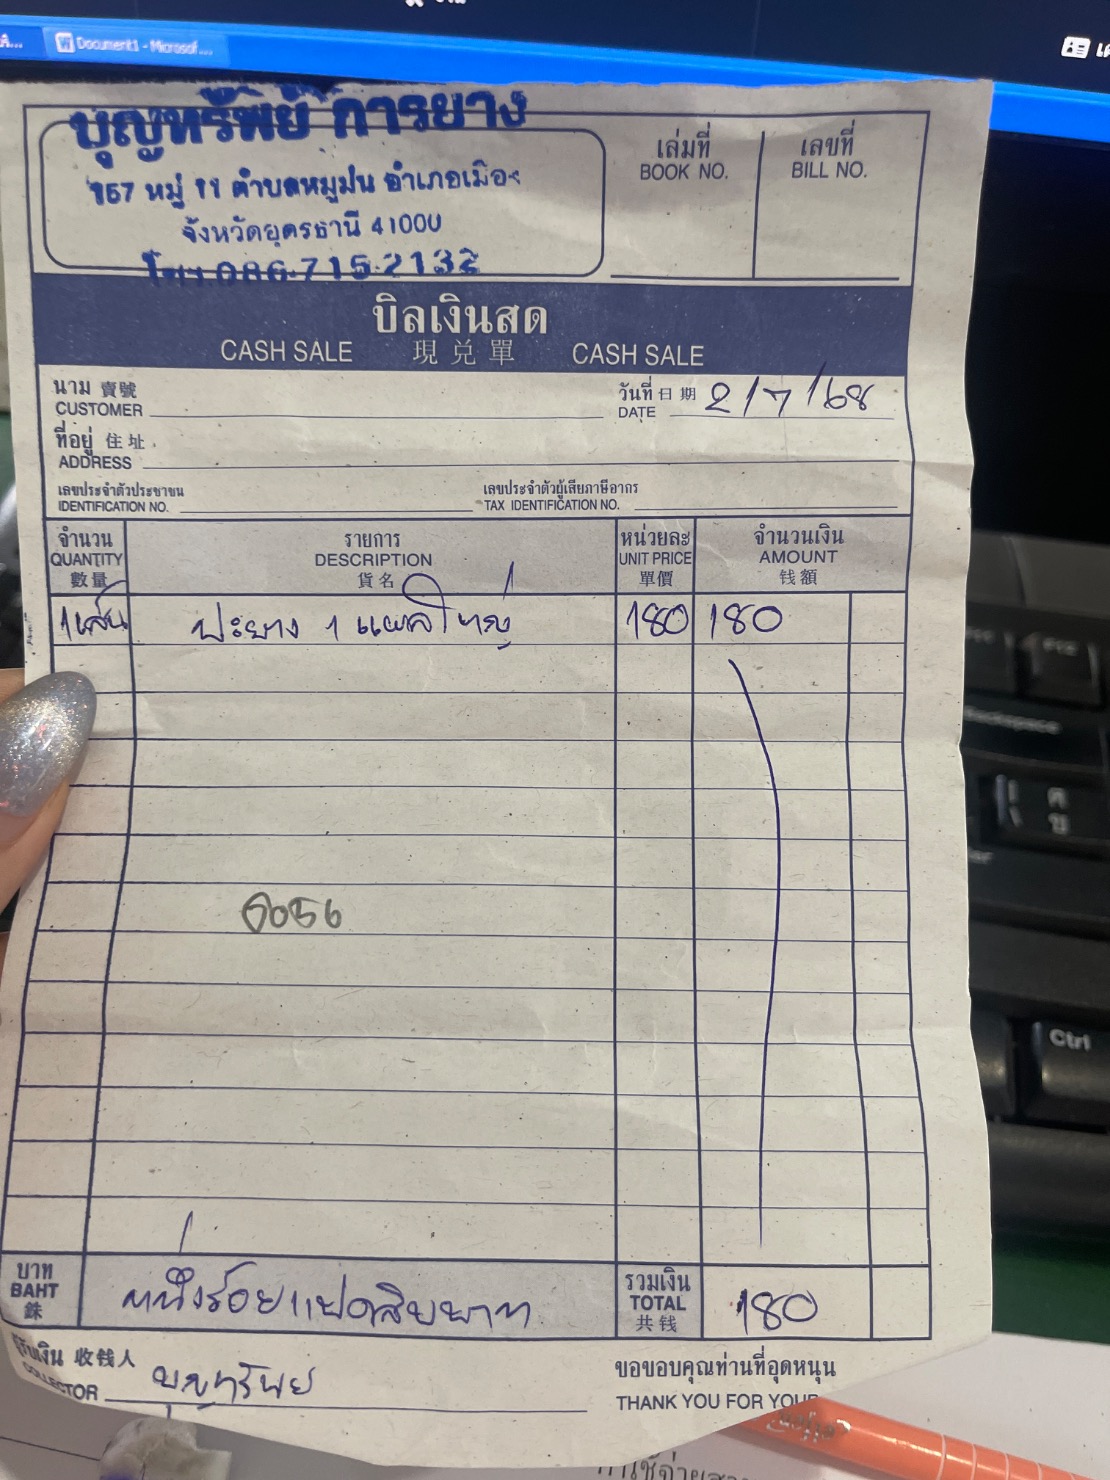 Document1 - Microsof ...
บุญทรัพย์ การยาง
167 หมู่ 11 ตำบลหมูม่น อำเภอเมือง
จังหวัดอุดรธานี 41000
โทร.086-715-2132
เล่มที่
BOOK NO.
เลขที่
BILL NO.
บิลเงินสด
CASH SALE 現兑單 CASH SALE
นาม 賣號
CUSTOMER
วันที่ 日期
DATE 2/7/68
ที่อยู่ 住址
ADDRESS
เลขประจำตัวประชาชน
IDENTIFICATION NO.
เลขประจำตัวผู้เสียภาษีอากร
TAX IDENTIFICATION NO.
จำนวน รายการ หน่วยละ จำนวนเงิน
QUANTITY DESCRIPTION UNIT PRICE AMOUNT
數量 貨名 單價 钱額
1เส้น ปะยาง 1 แผลใหญ่ 180 180
6056
บาท
BAHT
銖
หนึ่งร้อยแปดสิบบาท
รวมเงิน
TOTAL
共钱
180
ผู้รับเงิน 收钱人
COLLECTOR บุญทรัพย์
ขอขอบคุณท่านที่อุดหนุน
THANK YOU FOR YOUR
Backspace
Ctrl